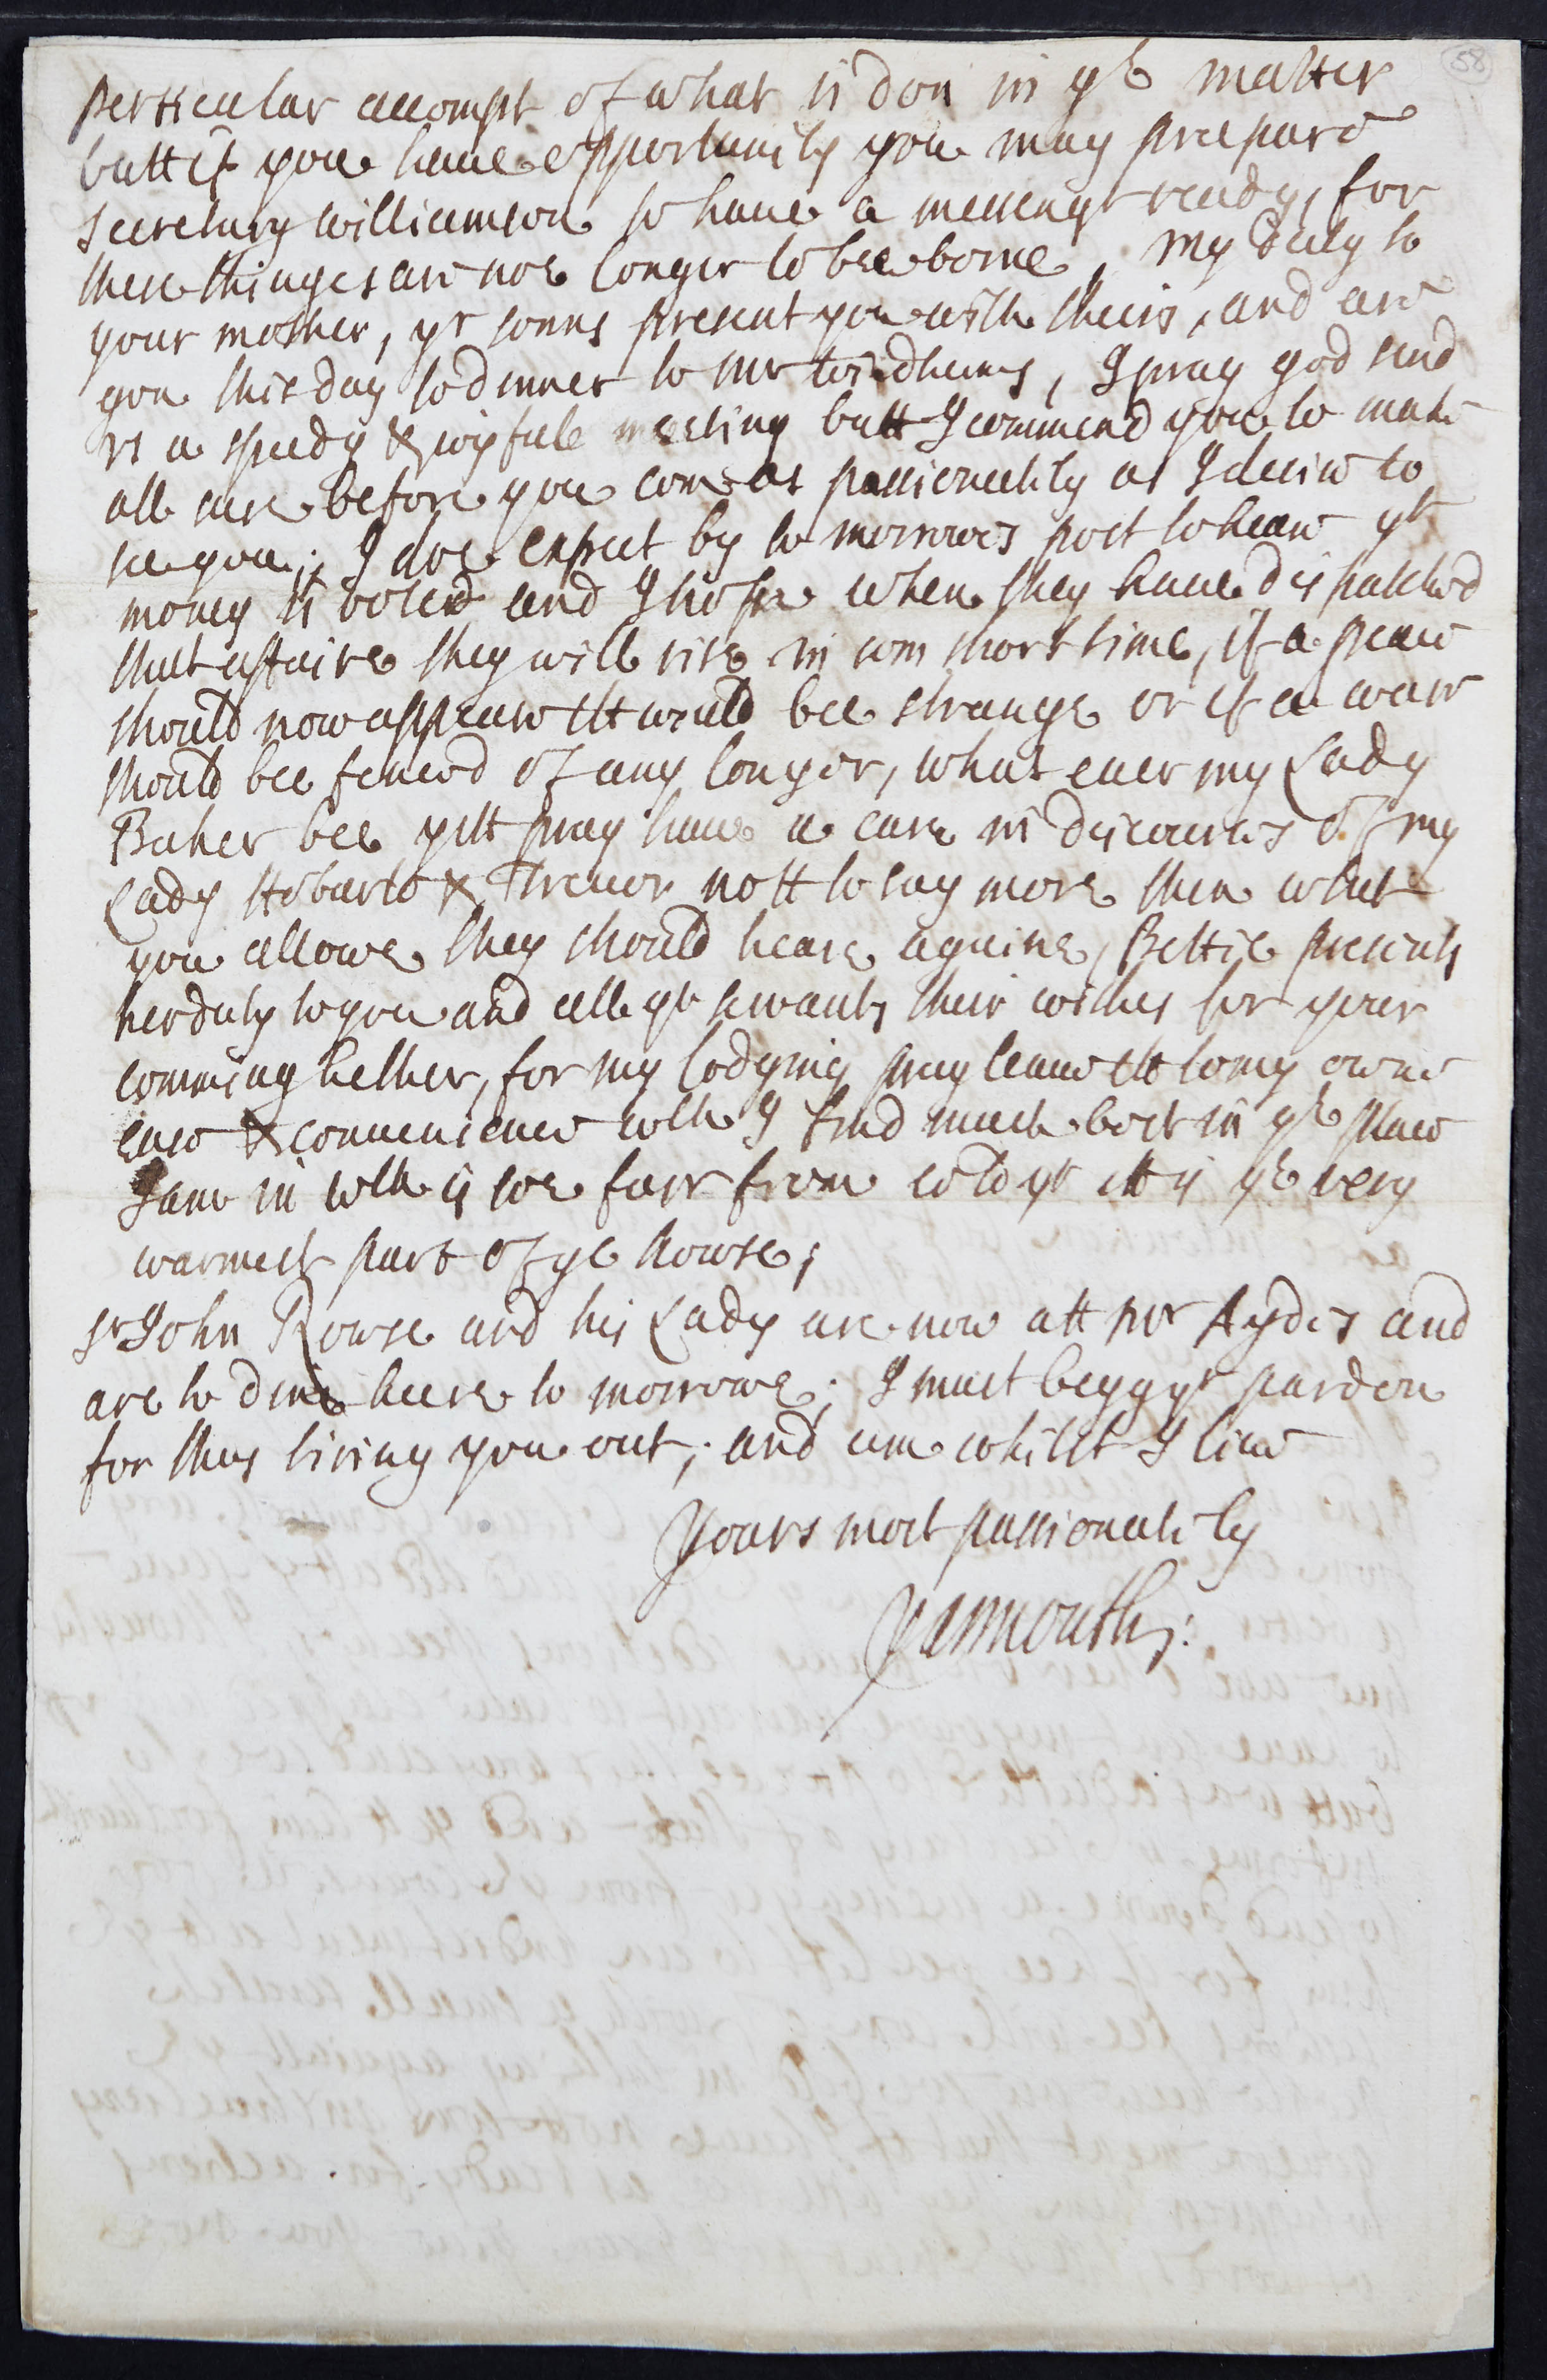 58
perticular accompt of what is don in ye matter
butt if you have opportunity you may prepare
secretary williamson to have a messengr ready, for
these thinges are noe longer to bee borne, my duty to
your mother, yr sonns present you with theirs, and are
gon this day to dinner to mr windhams, I pray god send
vs a speedy & joyfull meeting butt I commend you to make
all sure before you com as passionatly as I desire to
see you; I doe expect by to morrowes post to heare yt
money is voted and I hope when they have dispatched
that affaire they will rise in som short time, if a peace
should now appeare itt would bee strange or if a warr
should bee feard of any longer, what ever my Lady
Baker bee yett pray have a care in discourses of my
Lady Hobarts & Trevor nott to say more then what
you allowe they should heare againe, Bettie presents
her duty to you and all ye servants their wishes for your
comming hether, for my lodging pray leave itt to my owne
ease & convenience wch I find much best in ye place
I am in wch is soe farr from cold yt itt is ye very
warmest part of ye howse;
Sr John Rowse and his Lady are now att mr Aydes and
are to dine heere to morrowe; I must begg yr pardon
for thus tiring you out; and am whilst I live
Yours most passionatly
Yarmouth: